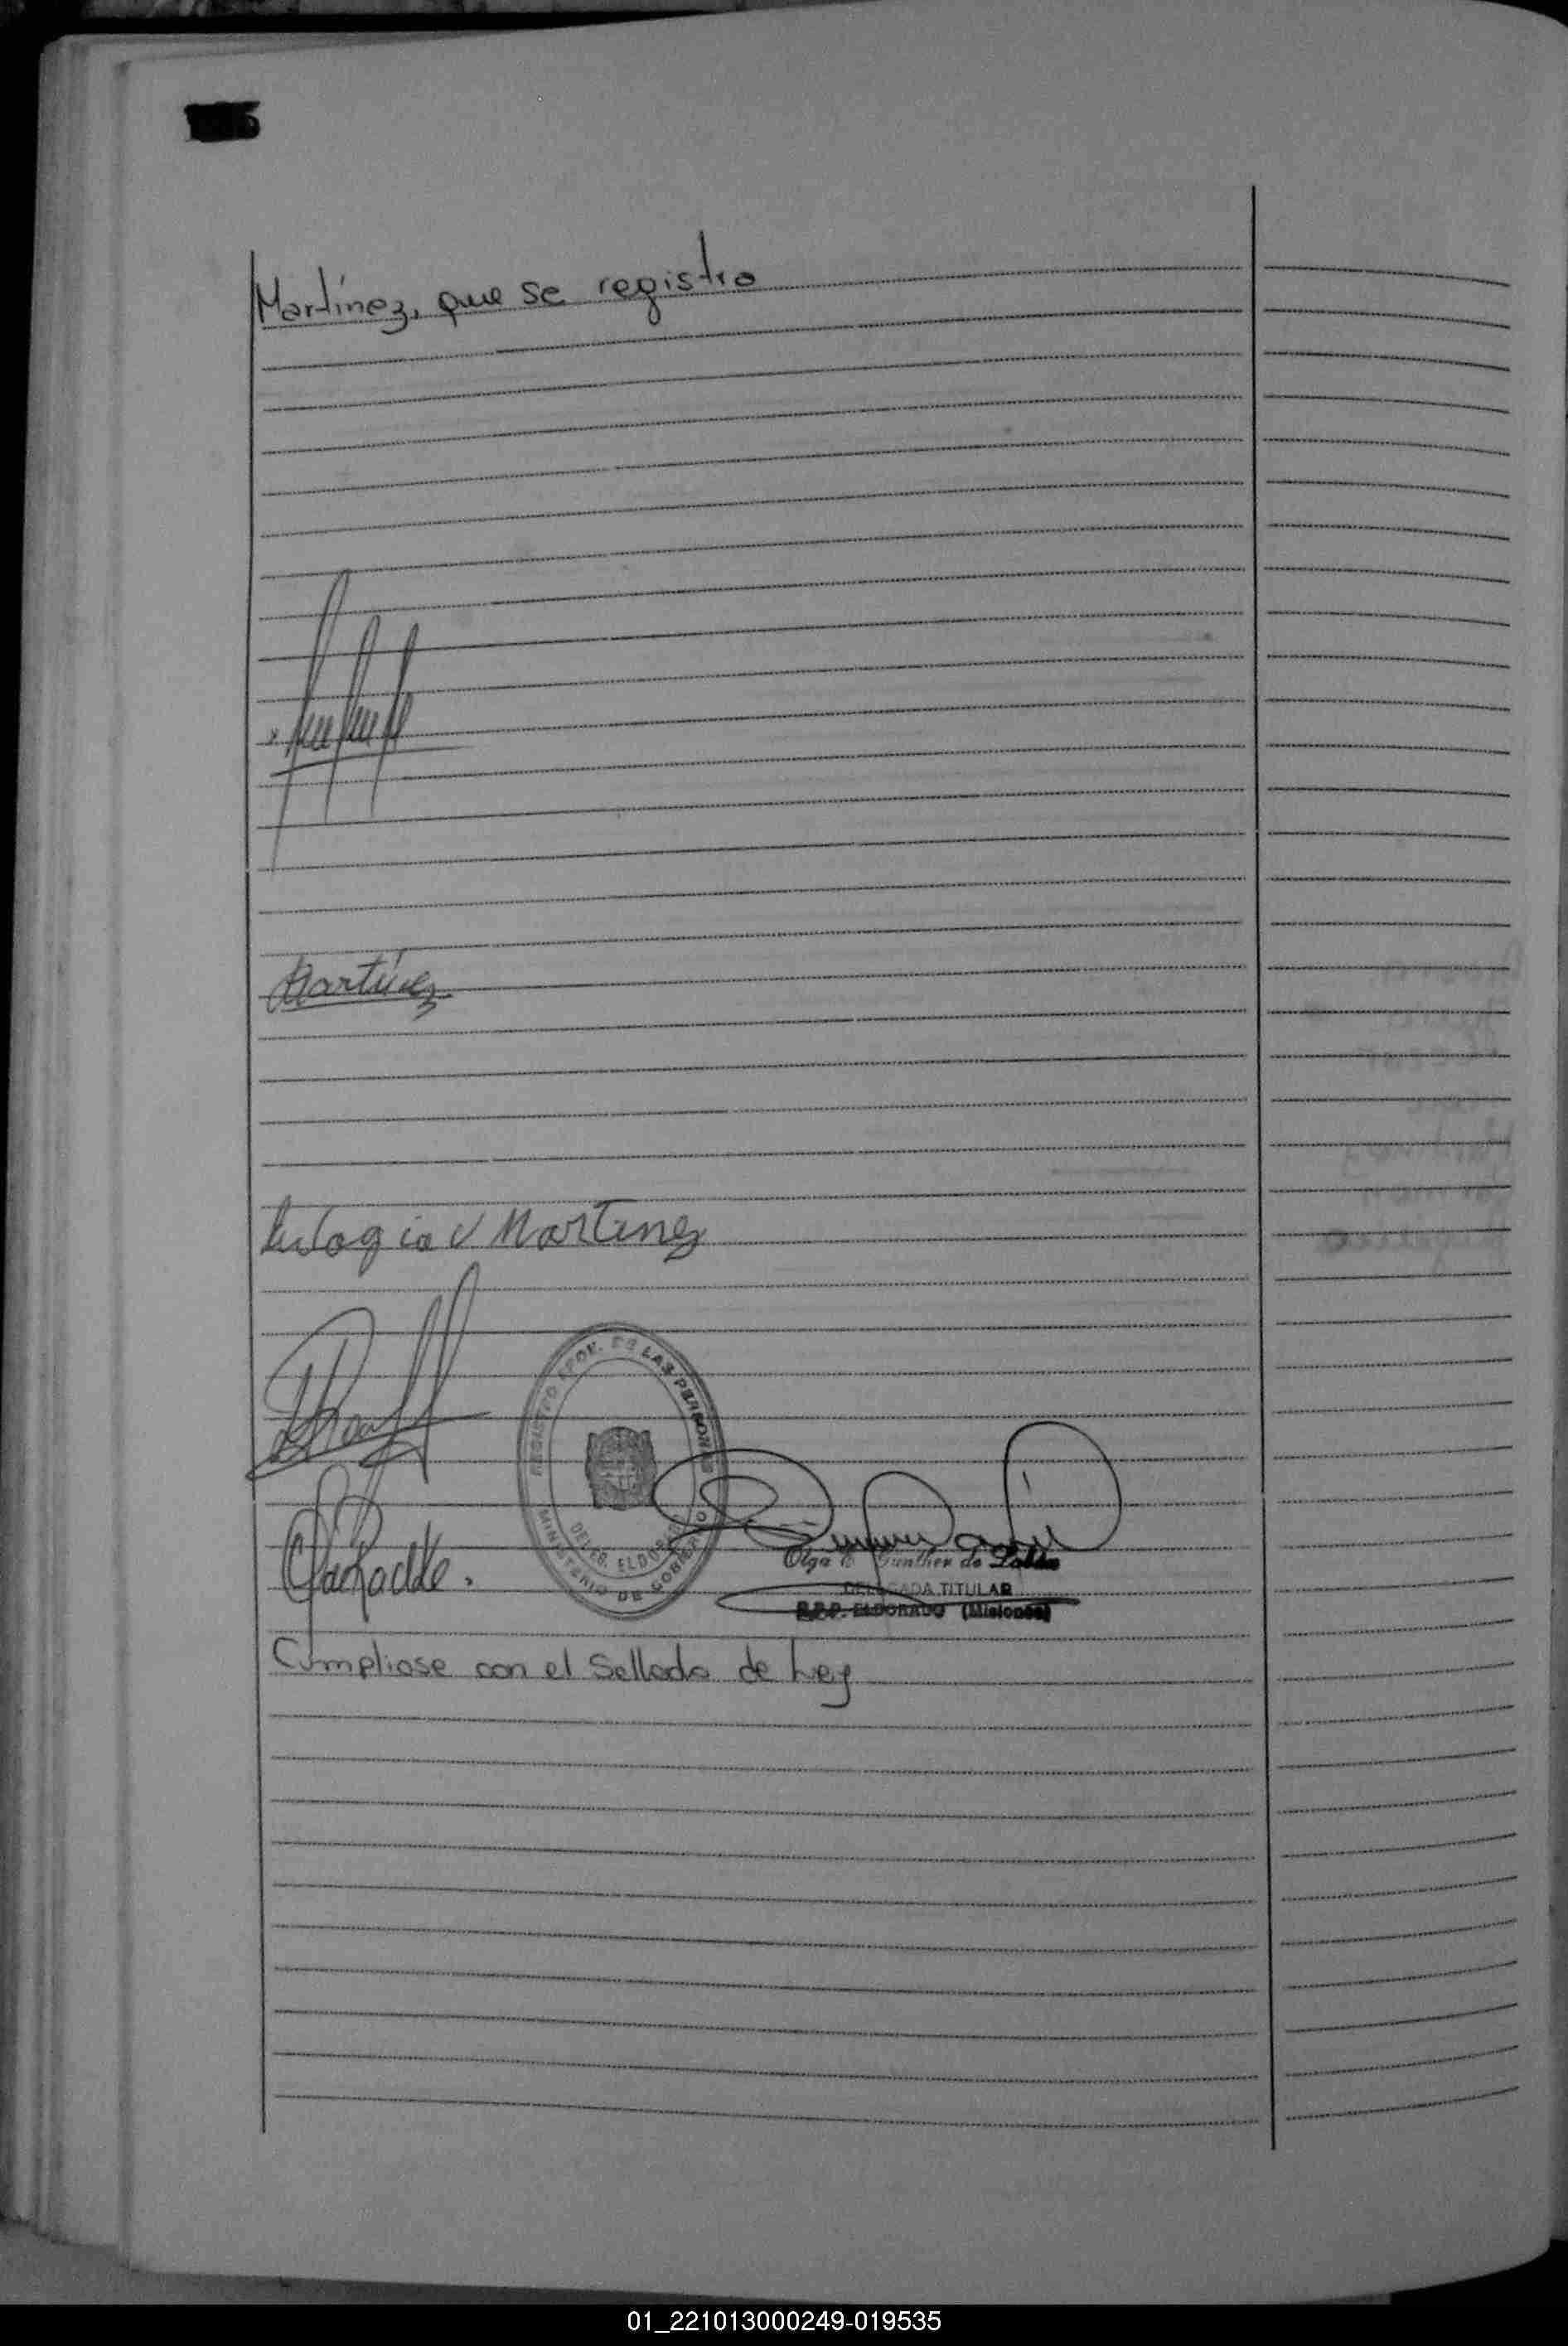 Martínez, que se registro
Martínez
Eulogia V Martinez
REGISTRO PROV. DE LAS PERSONAS
MINISTERIO DE GOBIERNO
DELEG. ELDORADO
Olga E. Gunther de
DELEGADA TITULAR
R.P.P. ELDORADO (Misiones)
Cumpliose con el Sellado de Ley
01_221013000249-019535